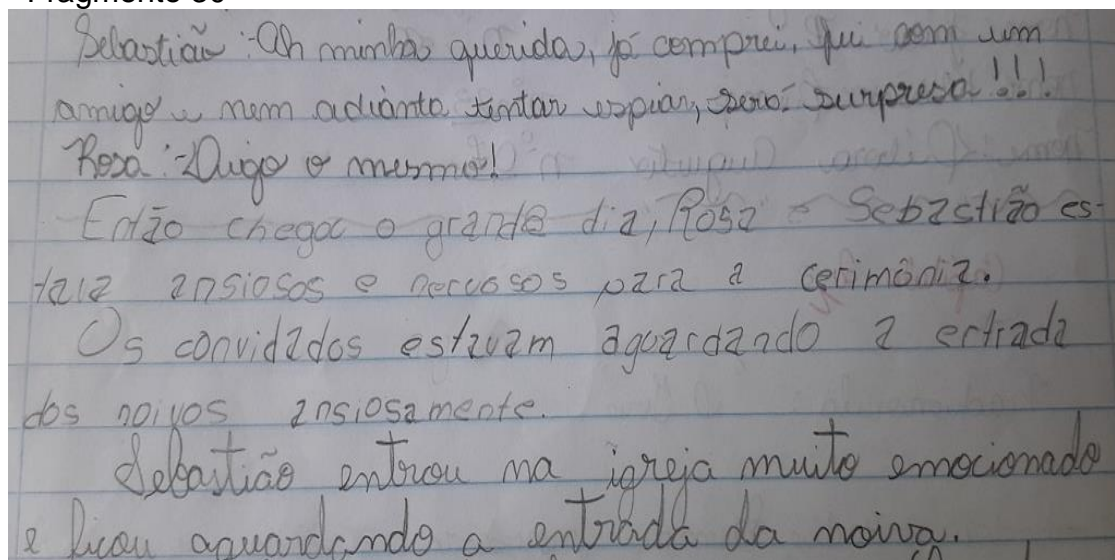 Sebastião: -Ah minha querida, já comprei, fui com um
amigo e nem adianta tentar espiar, será surpresa!!!
Rosa: -Digo o mesmo!
Então chegou o grande dia, Rosa e Sebastião es-
tava ansiosos e nervosos para a cerimônia.
Os convidados estavam aguardando a entrada
dos noivos ansiosamente.
Sebastião entrou na igreja muito emocionado
e ficou aguardando a entrada da noiva.